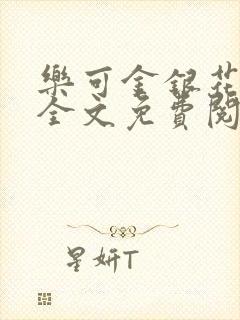 樂可金銀花
全文免費閱
星妍T